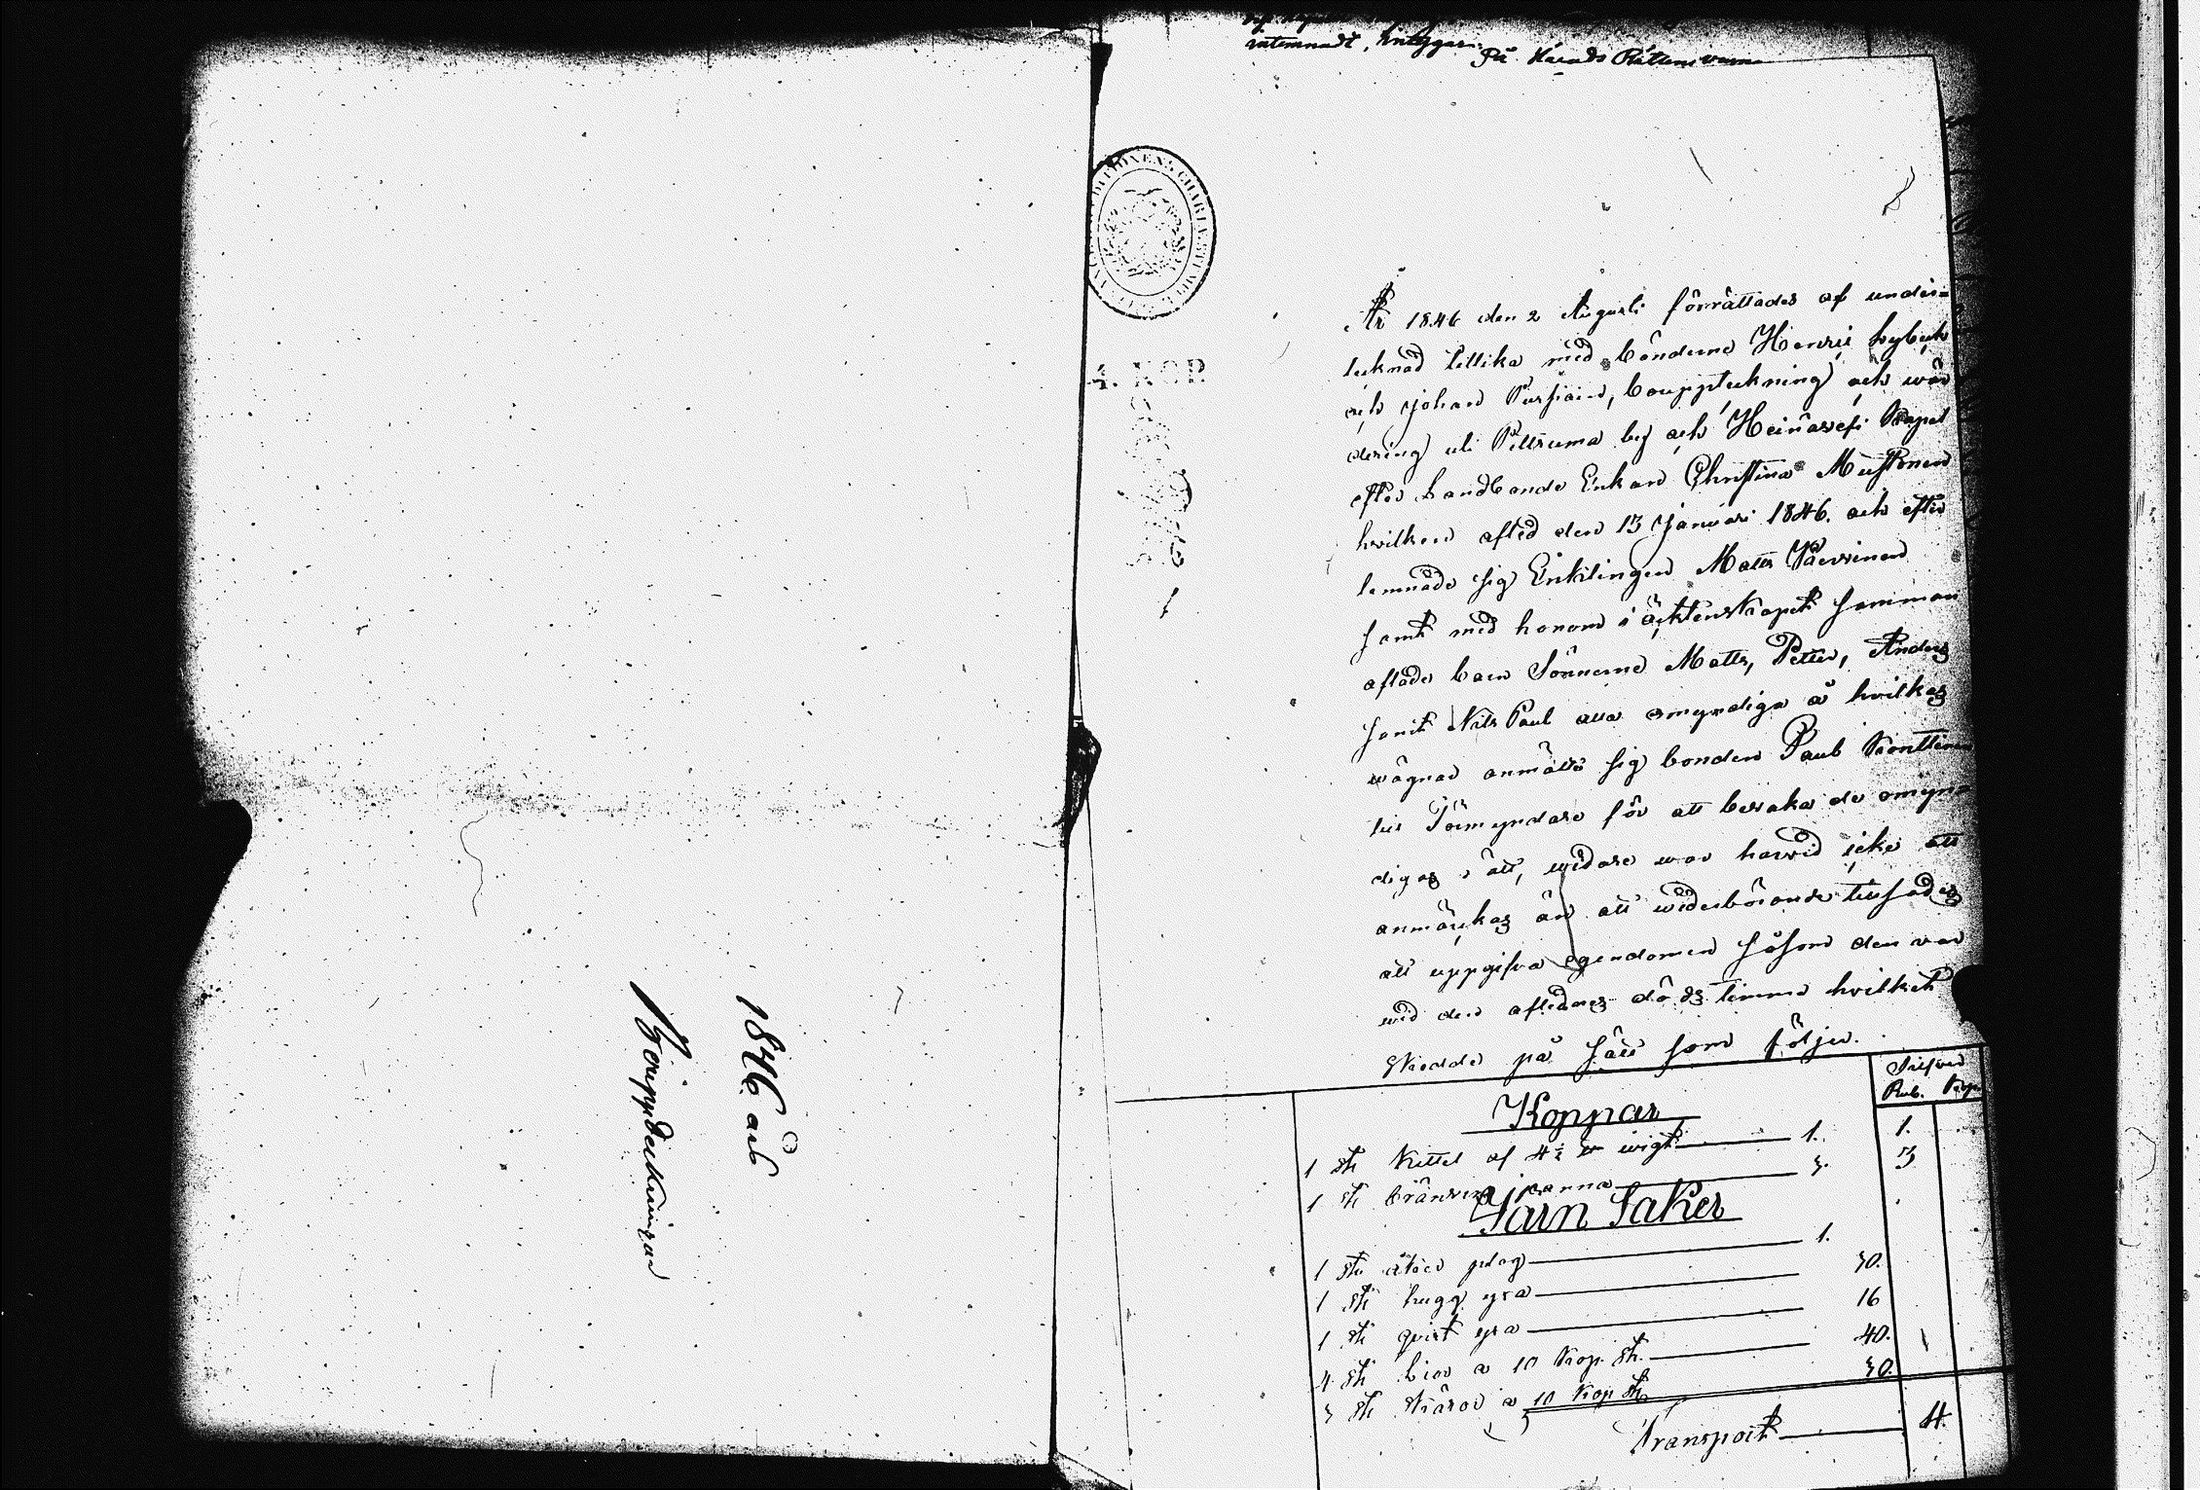 1846 års
Bouppteckningar
intemnadt, intygar.
På Härads Rättens
4. KOP.
År 1846 den 2 Augusti förrättades af under=
tecknad tillika med bönderne Henric
och Johan bouppteckning och wär
dering uti by och Heinävesi Kapel
efter Landbonde Enkan Christina Mustonen
hvilken afled den 13 Januari 1846. och efter
lemnade sig Enklingen Matts Päivinen
samt med honom i äcktenskapet samman
aflade barn Sönnerne Matts, Petter, Anders
samt Nils Paul alla omyndiga å hvilkas
wägnar anmälte sig bonden Paul Konttinen
till Förmyndare för att bevaka de omyn
digas rätt, widare war härvid icke att
anmärkas än att wederbörande tillsades
att uppgifva egendomen såsom den var
wid den aflednes döds timma hvilket
skedde på sätt som följer.
Silfver
Rub. Kop.
Koppar
1 st Kittel af 4½ ℔ wigt 1. 1.
1 st bränvins panna 3. 3
Järn Saker
1 st åker plog 1.
1 st hugg yxa 30.
1 st qvist yxa 16
4 st liar a 10 Kop. st. 40.
3 st skäror a 10 Kop st 30.
Transport 4.